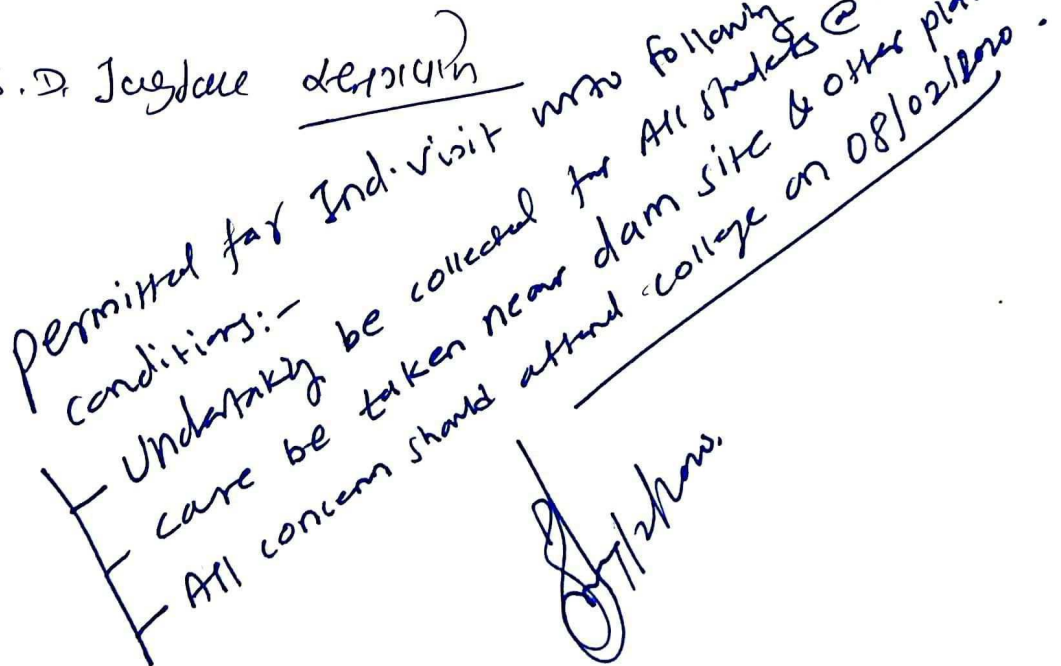 .D. Jagdale
permitted for Ind. visit w.r.to following
conditions:-
Undertaking be collected for All students @
care be taken near dam site & other
All concern should attend college on 08/02/2020.